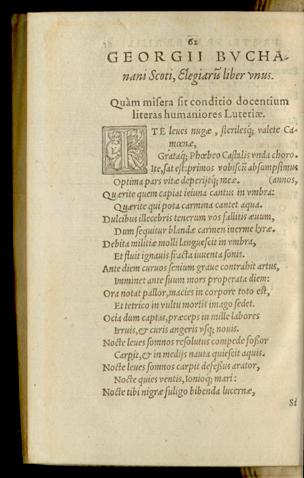 62
GEORGII BVCHA-
nani Scoti, Elegiarũ liber vnus.
Quàm misera sit conditio docentium
literas humaniores Lutetiæ.
ITE leues nugæ, sterilesq; valete Ca-
mœnæ,
Grataq; Phœbeo Castalis vnda choro.
Ite, sat est: primos vobiscũ absumpsimus
Optima pars vitæ deperijtq; meæ. (annos,
Quærite quem capiat ieiuna cantus in vmbra:
Quærite qui pota carmina cantet aqua.
Dulcibus illecebris tenerum vos fallitis æuum,
Dum sequitur blandæ carmen inerme lyræ.
Debita militiæ molli languescit in vmbra,
Et fluit ignauis fracta iuuenta sonis.
Ante diem curuos senium graue contrahit artus,
Imminet ante suum mors properata diem:
Ora notat pallor, macies in corpore toto est,
Et tetrico in vultu mortis imago sedet.
Ocia dum captas, præceps in mille labores
Irruis, & curis angeris vsq; nouis.
Nocte leues somnos resolutus compede fossor
Carpit, & in medijs nauta quiescit aquis.
Nocte leues somnos carpit defessus arator,
Nocte quies ventis, Ionioq; mari:
Nocte tibi nigræ fuligo bibenda lucernæ,
Si